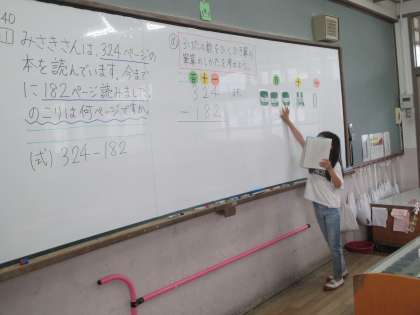 40
1
みさきさんは、324ページの
本を読んでいます。今まで
に182ページ読みました。
のこりは何ページですか。
(式) 324-182
3けたの数をひく計算の
筆算のしかたを考えよう。
百 十 一
324
-182
百 十 一